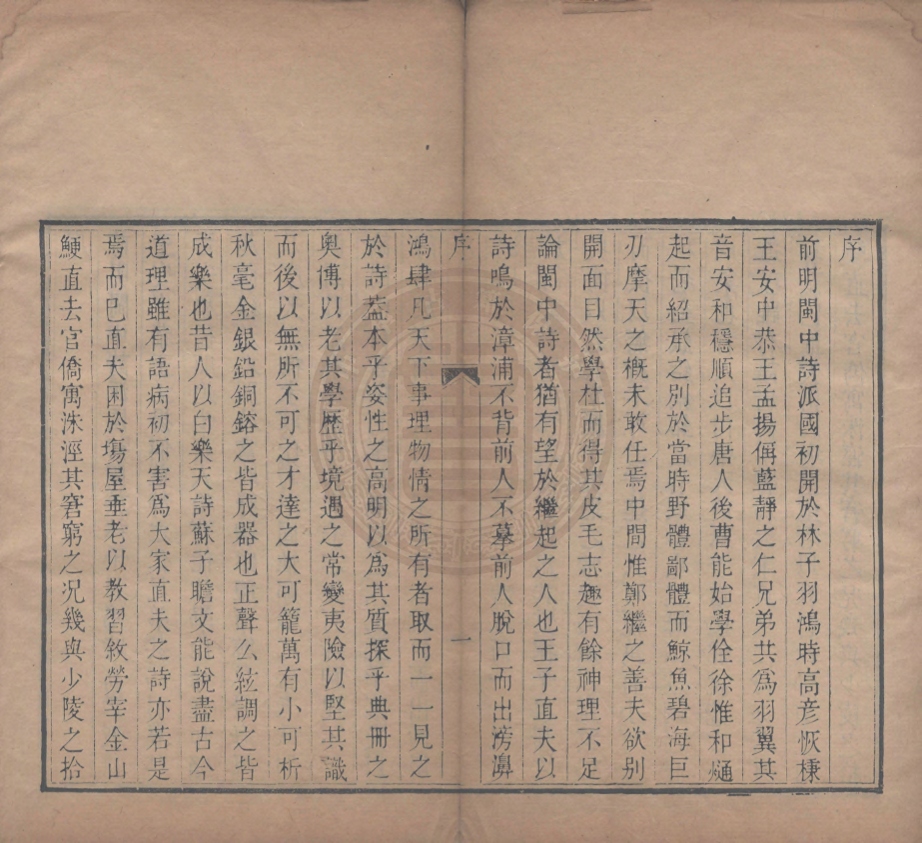 序
前明閩中詩派國初開於林子羽鴻時高彦恢棅
王安中恭王孟揚偁藍靜之仁兄弟共爲羽翼其
音安和穩順追步唐人後曹能始學佺徐惟和熥
起而紹承之別於當時野體鄙體而鯨魚碧海巨
刃摩天之概未敢任焉中間惟鄭繼之善夫欲別
開面目然學杜而得其皮毛志趣有餘神理不足
論閩中詩者猶有望於繼起之人也王子直夫以
詩鳴於漳浦不背前人不摹前人脫口而出滂濞
序
一
鴻肆凡天下事理物情之所有者取而一一見之
於詩葢本乎姿性之高明以爲其質探乎典冊之
奥博以老其學歷乎境遇之常變夷險以堅其識
而後以無所不可之才達之大可籠萬有小可析
秋毫金銀鉛銅鎔之皆成器也正聲么絃調之皆
成樂也昔人以白樂天詩蘇子瞻文能說盡古今
道理雖有語病初不害爲大家直夫之詩亦若是
焉而已直夫困於塲屋垂老以教習敘勞宰金山
鯁直去官僑寓洙涇其窘窮之况幾與少陵之拾